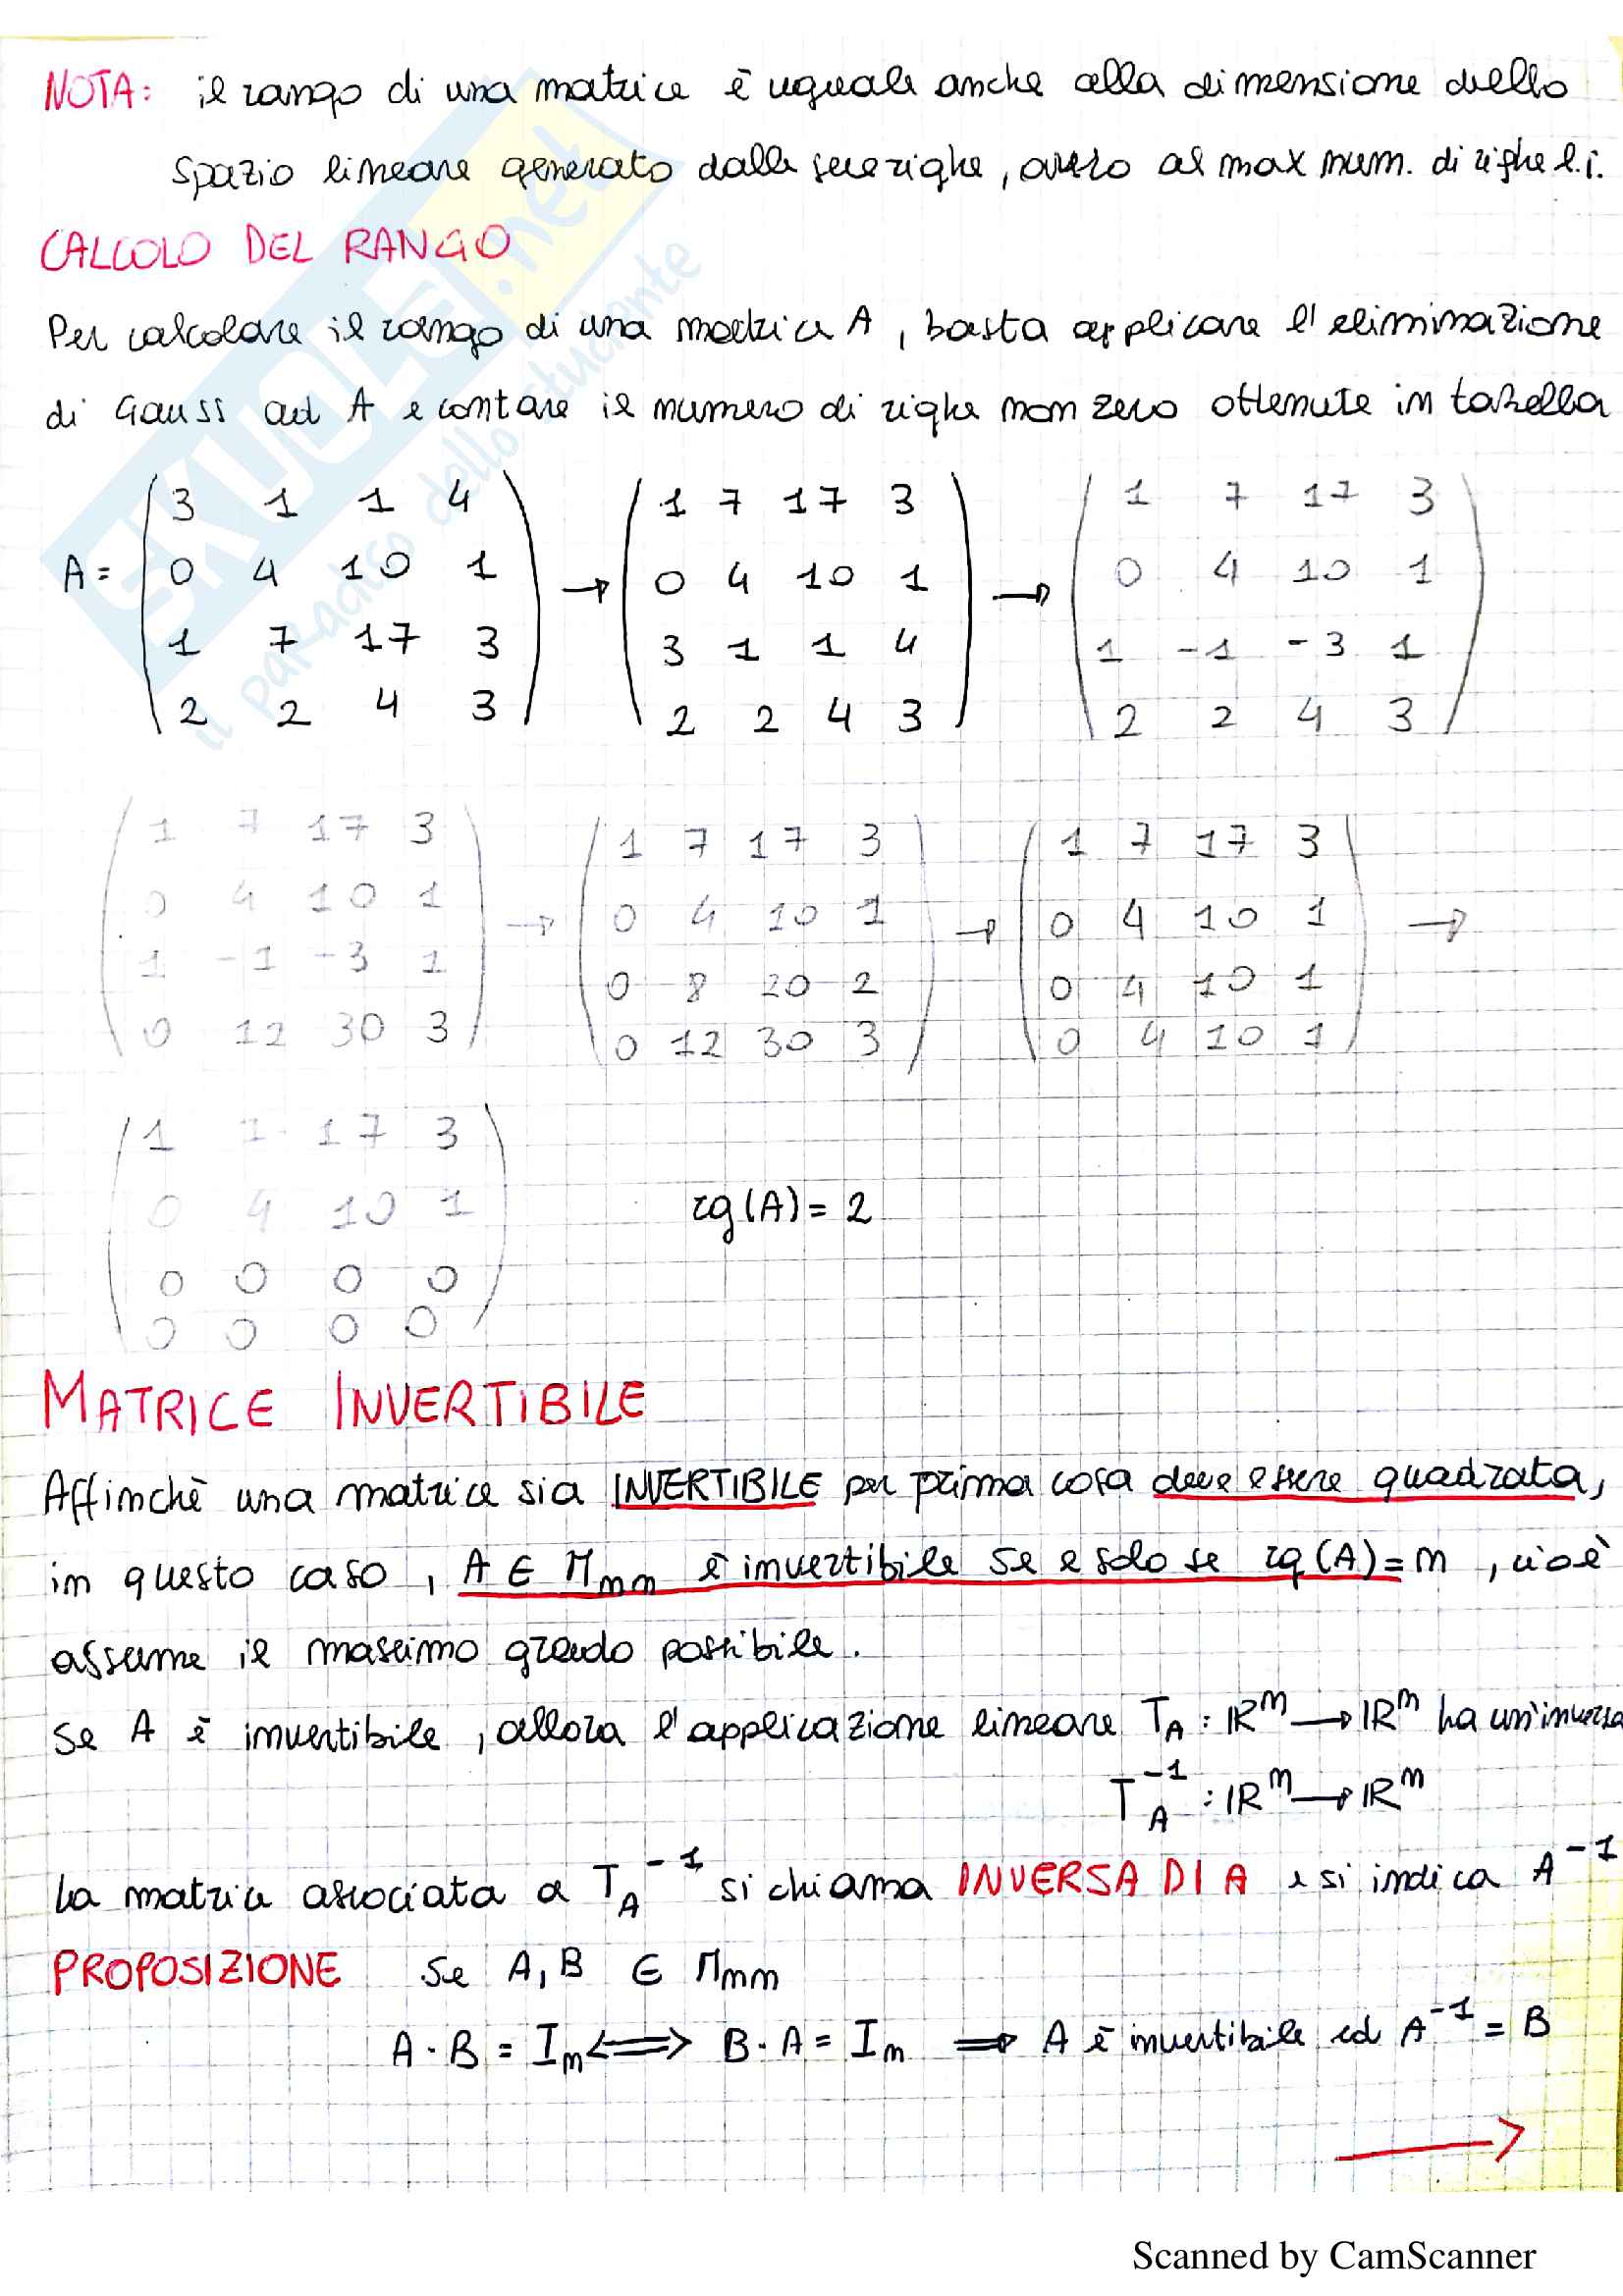 NOTA: il rango di una matrice è uguale anche alla dimensione dello
spazio lineare generato dalle sue righe, ovvero al max num. di righe l.i.
CALCOLO DEL RANGO
Per calcolare il rango di una matrice A, basta applicare l'eliminazione
di Gauss ad A e contare il numero di righe non zero ottenute in tabella
A= (3 1 1 4 → (1 7 17 3 → (1 7 17 3
0 4 10 1 0 4 10 1 0 4 10 1
1 7 17 3 3 1 1 4 1 -1 -3 1
2 2 4 3) 2 2 4 3) 2 2 4 3)
(1 7 17 3 → (1 7 17 3 → (1 7 17 3 →
0 4 10 1 0 4 10 1 0 4 10 1
1 -1 -3 1 0 8 20 2 0 4 10 1
0 12 30 3) 0 12 30 3) 0 4 10 1)
(1 7 17 3
0 4 10 1 rg(A)=2
0 0 0 0
0 0 0 0)
MATRICE INVERTIBILE
Affinchè una matrice sia INVERTIBILE per prima cosa deve essere quadrata,
in questo caso, A ∈ Mnn è invertibile se e solo se rg(A)=n, cioè
assume il massimo grado possibile.
Se A è invertibile, allora l'applicazione lineare T_A : ℝⁿ → ℝⁿ ha un'inversa
T_A⁻¹ : ℝⁿ → ℝⁿ
La matrice associata a T_A⁻¹ si chiama INVERSA DI A e si indica A⁻¹
PROPOSIZIONE Se A, B ∈ Mnn
A·B = In ⟺ B·A = In ⟹ A è invertibile ed A⁻¹ = B
→
SKUOLA.net
il paradiso dello studente
Scanned by CamScanner